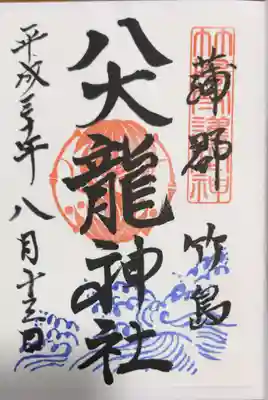 蒲郡 竹島
八大龍神社
平成三十年 八月十三日